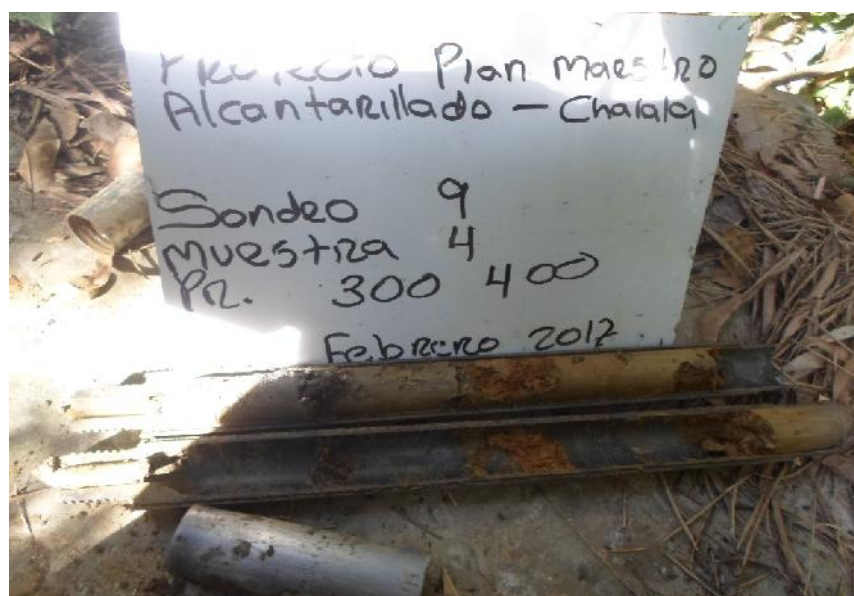 Proyecto Plan Maestro
Alcantarillado - Chalala
Sondeo 9
Muestra 4
Pr. 300 400
Febrero 2017